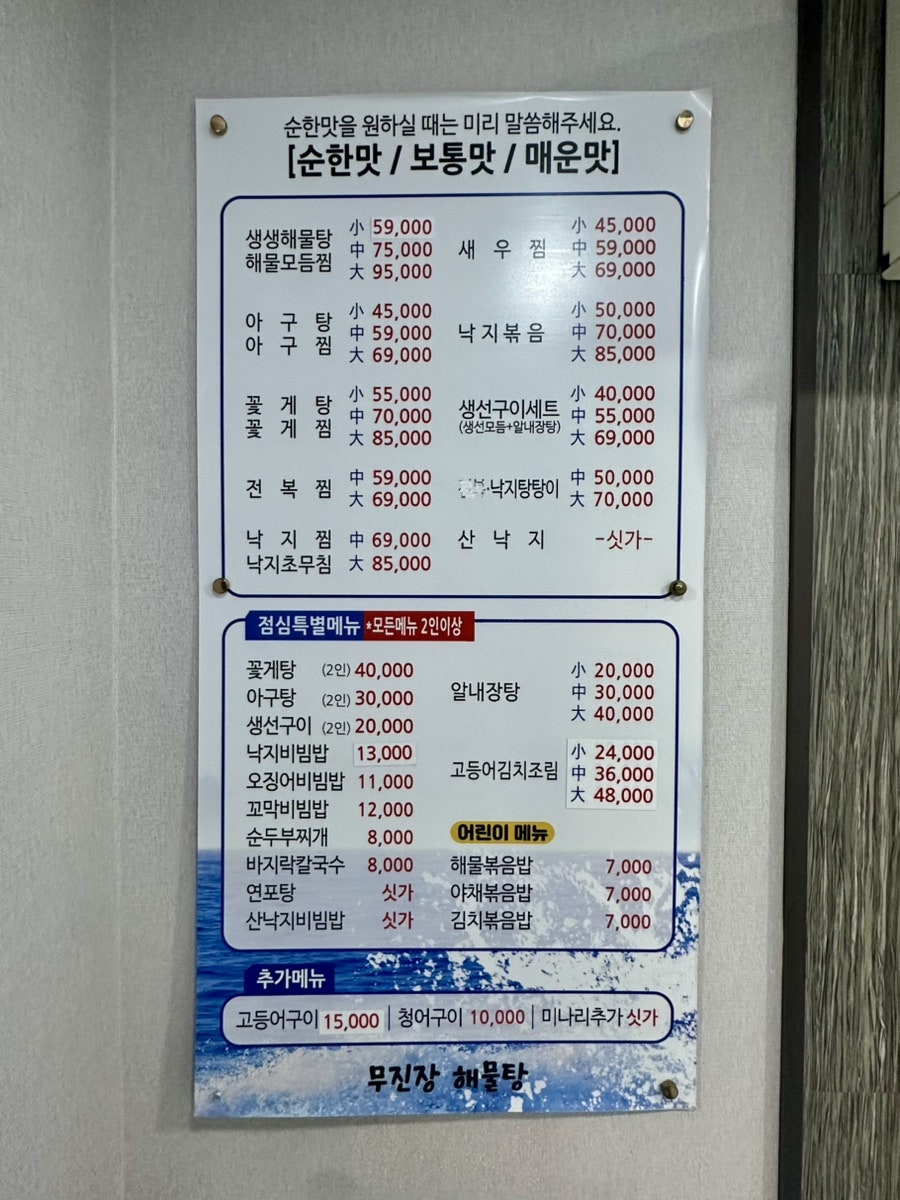 순한맛을 원하실 때는 미리 말씀해주세요.
[순한맛 / 보통맛 / 매운맛]
생생해물탕
해물모듬찜
小 59,000
中 75,000
大 95,000
아 구 탕
아 구 찜
小 45,000
中 59,000
大 69,000
꽃 게 탕
꽃 게 찜
小 55,000
中 70,000
大 85,000
전 복 찜
中 59,000
大 69,000
낙 지 찜
낙지초무침
中 69,000
大 85,000
새 우 찜
小 45,000
中 59,000
大 69,000
낙지볶음
小 50,000
中 70,000
大 85,000
생선구이세트
(생선모듬+알내장탕)
小 40,000
中 55,000
大 69,000
낙지탕탕이
中 50,000
大 70,000
산 낙 지 -싯가-
점심특별메뉴 *모든메뉴 2인이상
꽃게탕 (2인) 40,000
아구탕 (2인) 30,000
생선구이 (2인) 20,000
낙지비빔밥 13,000
오징어비빔밥 11,000
꼬막비빔밥 12,000
순두부찌개 8,000
바지락칼국수 8,000
연포탕 싯가
산낙지비빔밥 싯가
알내장탕
小 20,000
中 30,000
大 40,000
고등어김치조림
小 24,000
中 36,000
大 48,000
어린이 메뉴
해물볶음밥 7,000
야채볶음밥 7,000
김치볶음밥 7,000
추가메뉴
고등어구이 15,000 | 청어구이 10,000 | 미나리추가 싯가
무진장 해물탕